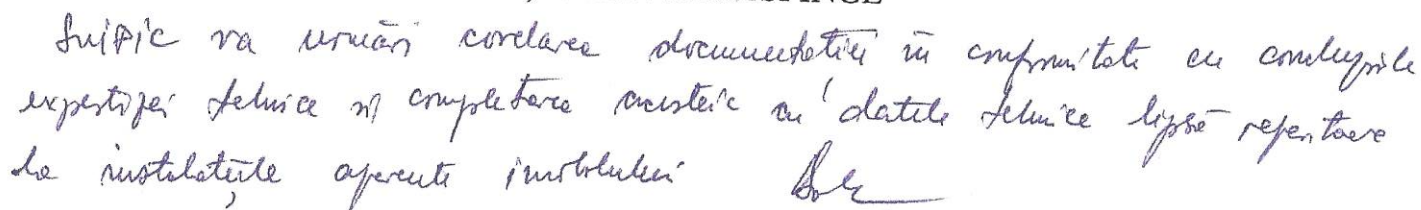 va urmări corelarea documentației în conformitate cu concluziile
expertizei tehnice și completarea acesteia cu datele tehnice lipsă referitoare
la instalațiile aferente imobilului